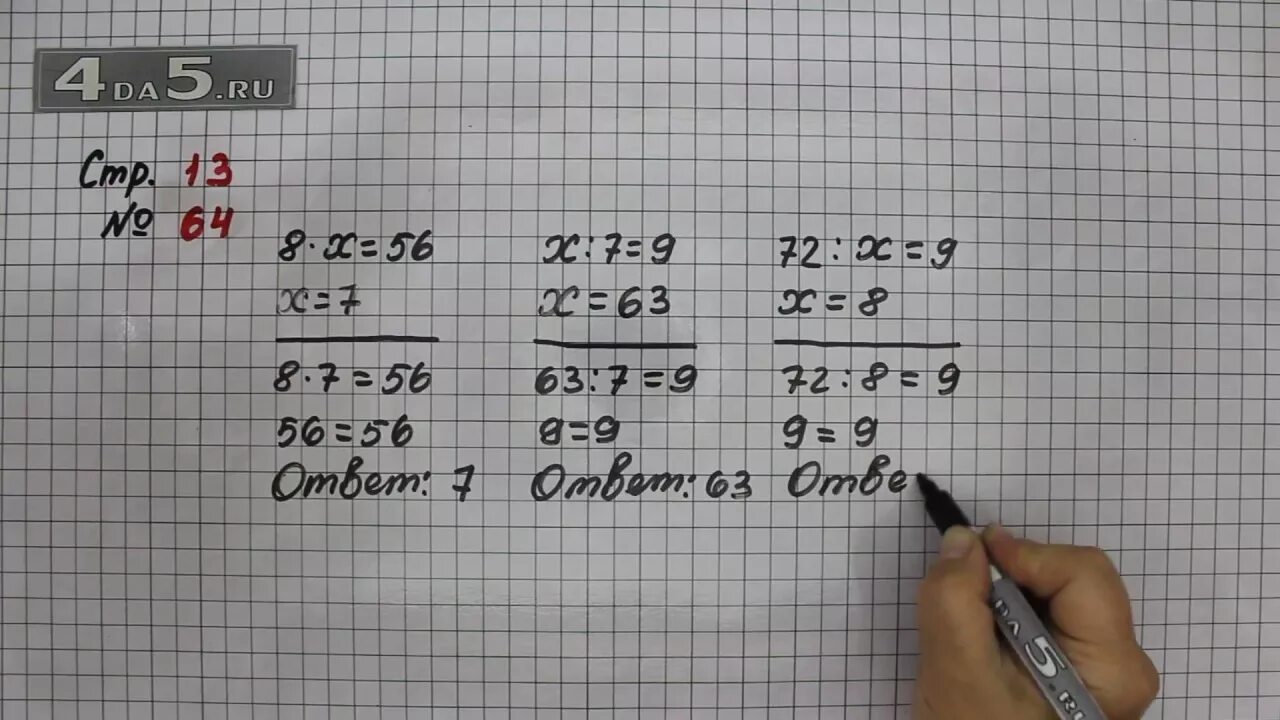 4DA5.RU
Стр. 13
№ 64
8·x=56
x=7
8·7=56
56=56
Ответ: 7
x:7=9
x=63
63:7=9
9=9
Ответ: 63
72:x=9
x=8
72:8=9
9=9
Отве
DA5.RU